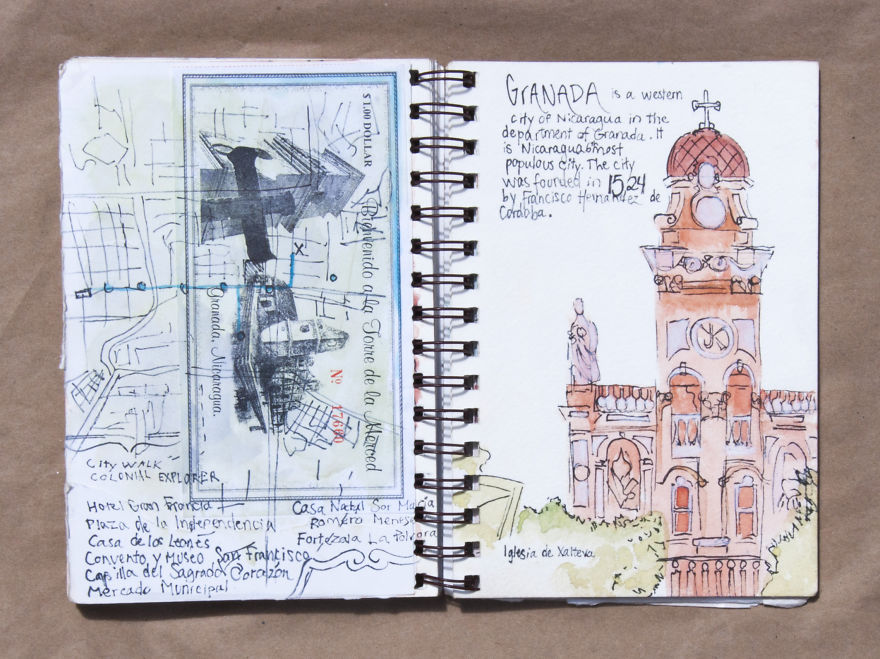 $1.00 DOLLAR
Bienvenido a la Torre de la Merced
Granada, Nicaragua
Nº 17660
X
City WALK
COLONIAL EXPLORER
Hotel Gran Francia
Plaza de la Independencia
Casa de los Leones
Convento y Museo San Francisco
Capilla del Sagrado Corazón
Mercado Municipal
Casa Natal Sor María
Romero Meneses
Fortezala La Polvora
GRANADA is a western
city of Nicaragua in the
department of Granada. It
is Nicaragua's 6 most
populous city. The city
was founded in 1524
by Francisco Hernandez de
Cordoba.
Iglesia de Xalteva